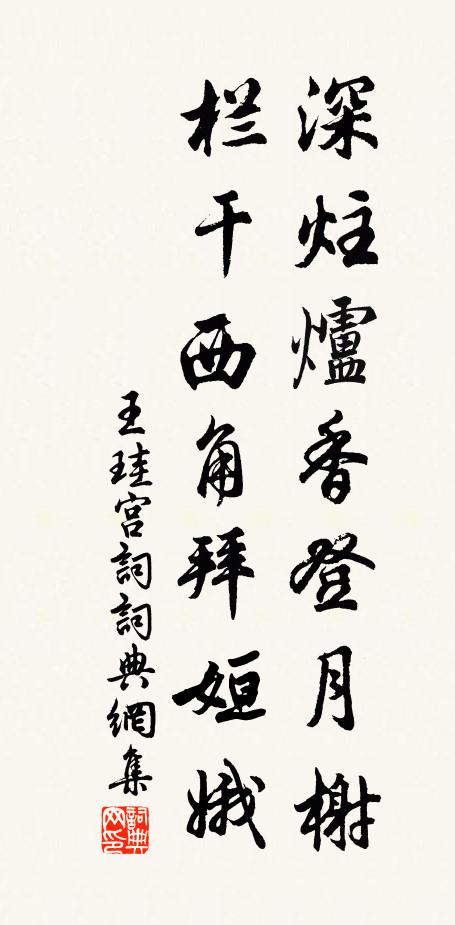 深炷爐香登月榭
栏干西角拜姮娥
王珪宫詞詞典網集
詞典
网印